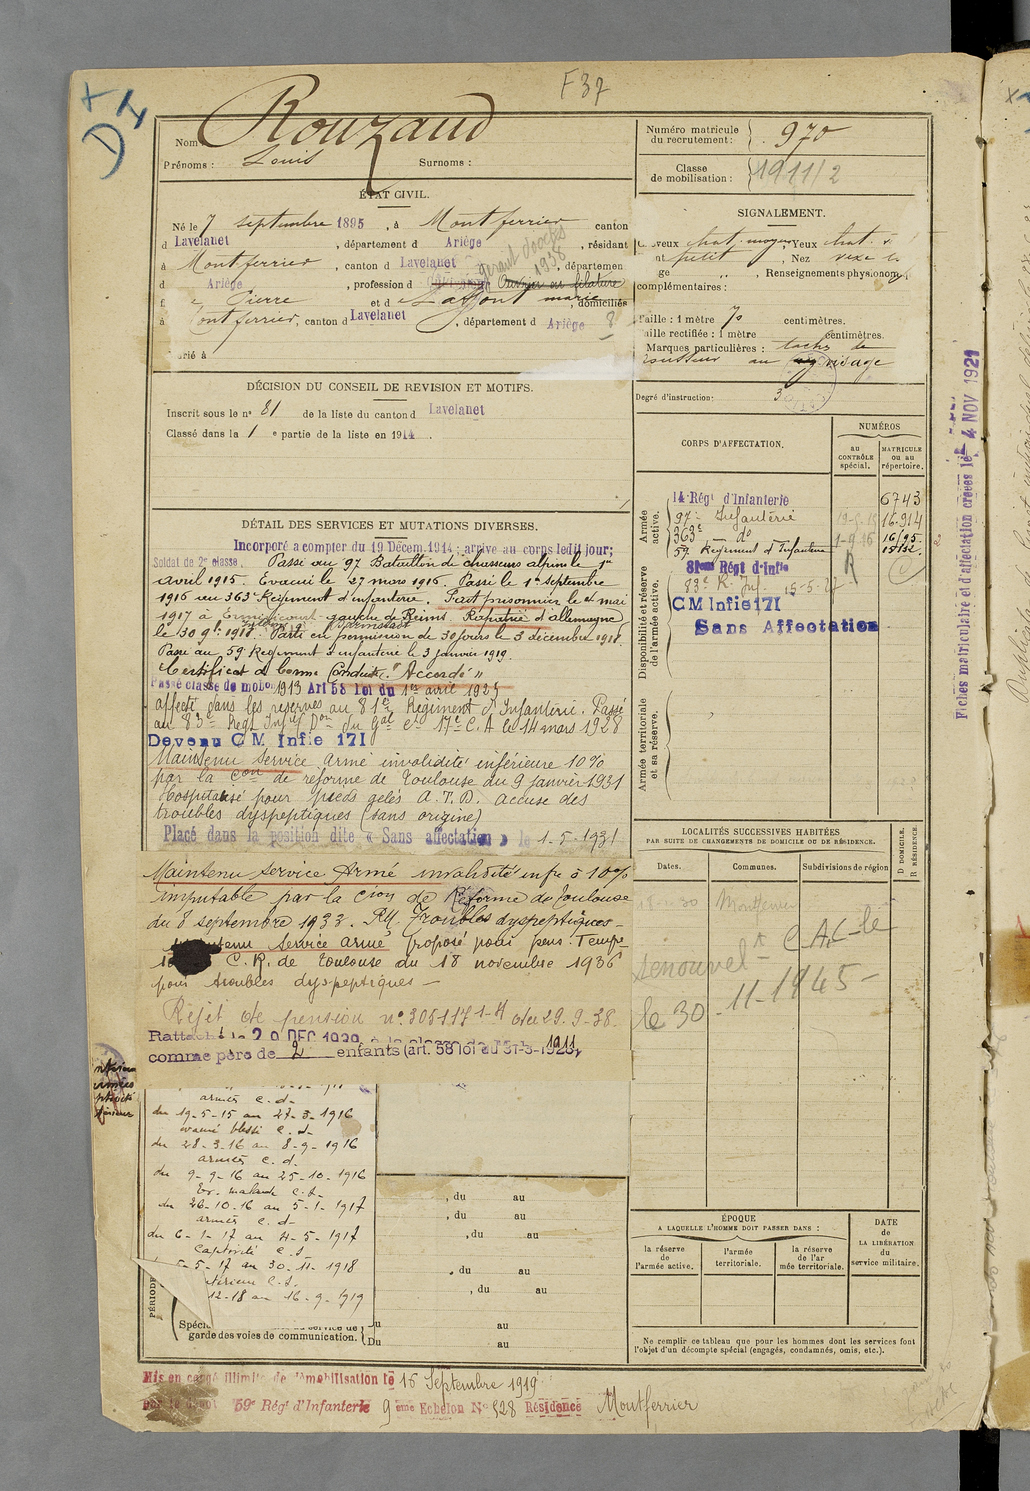 F 37
D I
Nom Rouzaud
Prénoms : Louis Surnoms :
Numéro matricule du recrutement : 970
Classe de mobilisation : 1911/2
ÉTAT CIVIL.
Né le 7 septembre 1895, à Montferrier canton
d Lavelanet, département d Ariège, résidant
à Montferrier, canton d Lavelanet, départemen
d Ariège, profession d Ouvrier en filature
1938
Pierre et d e Laffont marie, domiciliés
à ontferrier, canton d Lavelanet, département d Ariège 8
arié à
SIGNALEMENT.
eveux chat. moyen, Yeux chat.
petit, Nez vexe
ge " , Renseignements physionom
complémentaires :
Taille : 1 mètre 70 centimètres.
aille rectifiée : 1 mètre centimètres.
Marques particulières : taches de
rousseur au visage
Degré d'instruction : 3
DÉCISION DU CONSEIL DE REVISION ET MOTIFS.
Inscrit sous le n° 81 de la liste du canton d Lavelanet
Classé dans la 1 e partie de la liste en 1914.
DÉTAIL DES SERVICES ET MUTATIONS DIVERSES.
Incorporé a compter du 19 Décem. 1914 ; arrivé au corps ledit jour ;
Soldat de 2e classe. Passé au 97 Bataillon de chasseurs alpins le 1er
avril 1915. Evacué le 27 mars 1916. Passé le 1er septembre
1916 au 363e Régiment d'infanterie. Fait prisonnier le 4 mai
1917 à gauche de Reims. Rapatrié d'allemagne
le 30 9bre 1918. Parti en permission de 30 jours le 3 décembre 1918.
Passé au 59 Régiment d'infanterie le 3 janvier 1919.
Certificat de bonne Conduite "Accordé"
Passé classe de mobon 1913 Art 58 loi du 1er avril 1923
affecté dans les réserves au 81e Régiment d'Infanterie. Passé
au 83e Régt Infie Don du Gal Ct 17e C.A le 14 mars 1928
Devenu CM Infie 171
Maintenu Service armé invalidité inférieure 10%
par la Con de réforme de Toulouse du 9 janvier 1931
Hospitalisé pour pieds gelés A.T.D. accuse des
troubles dyspeptiques (sans origine)
Placé dans la position dite « Sans affectation » le 1-5-1931
Maintenu service Armé invalidité infre à 10%
imputable par la Cion de Réforme de Toulouse
du 8 septembre 1933. Troubles dyspeptiques -
Service armé proposé pour pens. Temp
C.R. de Toulouse du 18 novembre 1936
pour troubles dyspeptiques -
Rejet de pension n° 305117 1-A du 29.9-38.
Rattaché le 29 DEC 1939 à la classe de mob. 1911
comme père de 2 enfants (art. 58 loi du 31-3-1928)
CORPS D'AFFECTATION.
NUMÉROS
au CONTRÔLE spécial.
MATRICULE ou au répertoire.
Armée active.
14 Régt d'Infanterie 6743
97e Infanterie 19-5-15 16.914
363e do 1-9-16 16195
59 Régiment d'Infanterie
Disponibilité et réserve de l'armée active.
81eme Régt d'Infie R
83e R. Inf. 15-5-27
CM Infie 171
Sans Affectation
Armée territoriale et sa réserve.
LOCALITÉS SUCCESSIVES HABITÉES
PAR SUITE DE CHANGEMENTS DE DOMICILE OU DE RÉSIDENCE.
Dates. Communes. Subdivisions de région
D DOMICILE.
R RÉSIDENCE.
Montferrier
C.A.C le
le 30 - 11 - 1945 -
armés c.d.
du 19-5-15 au 27-3-1916
évacué blessé c.d.
du 28-3-16 au 8-9-1916
armées c.d.
du 9-9-16 au 25-10-1916
Ev. malade c.d.
du 26-10-16 au 5-1-1917
armées c.d.
du 6-1-17 au 4-5-1917
Captivité c.d.
5-5-17 au 30-11-1918
intérieur c.d.
12-18 au 16-9-1919
PÉRIODE
, du au
, du au
, du au
, du au
, du au
Spéci service de
garde des voies de communication. Du au
Du au
ÉPOQUE
A LAQUELLE L'HOMME DOIT PASSER DANS :
la réserve de l'armée active.
l'armée territoriale.
la réserve de l'ar mée territoriale.
DATE de LA LIBÉRATION du service militaire.
Ne remplir ce tableau que pour les hommes dont les services font
l'objet d'un décompte spécial (engagés, condamnés, omis, etc.).
Mis en congé illimité de démobilisation le 16 Septembre 1919
par le dépôt 59e Régt d'Infanterie 9 ème Echelon N° 528 Résidence Montferrier
Fiches matriculaire et d'affectation créées le 4 NOV 1921